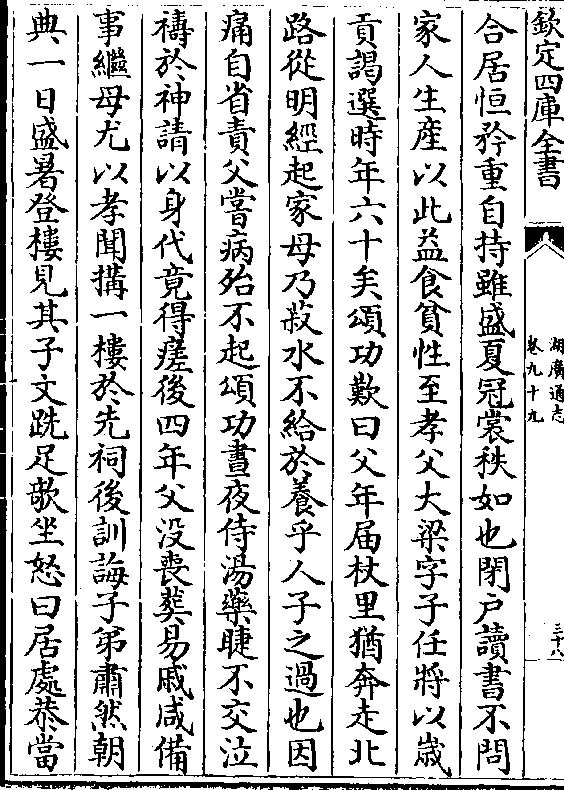 欽定四庫全書
湖廣通志
卷九十九
三十八
合居恒矜重自持雖盛夏冠裳秩如也閉户讀書不問
家人生產以此益食貧性至孝父大梁字子任將以嵗
貢謁選時年六十矣頌功歎曰父年屆杖里猶奔走北
路從明經起家毋乃菽水不給於養乎人子之過也因
痛自省責父嘗病殆不起頌功晝夜侍湯藥睫不交泣
禱於神請以身代竟得瘥後四年父没喪葬易戚咸備
事繼母尤以孝聞搆一樓於先祠後訓誨子弟肅然朝
典一日盛暑登樓見其子文跣足欹坐怒曰居處恭當